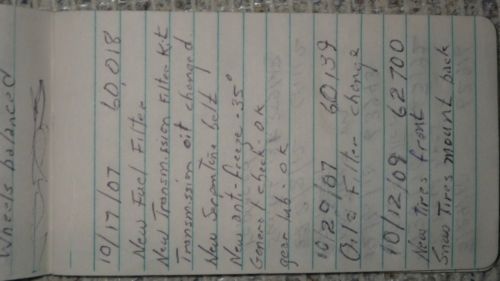 Wheels balanced
10/17/07 60,018
New Fuel Filter
New Transmission Filter Kit
Transmission oil changed
New Serpentine belt
New Ant-freeze -35°
General check - ok
gear lub - ok
10/29/07 60,139
Oil & Filter change
10/12/09 62700
New Tires front
Snow Tires mount back